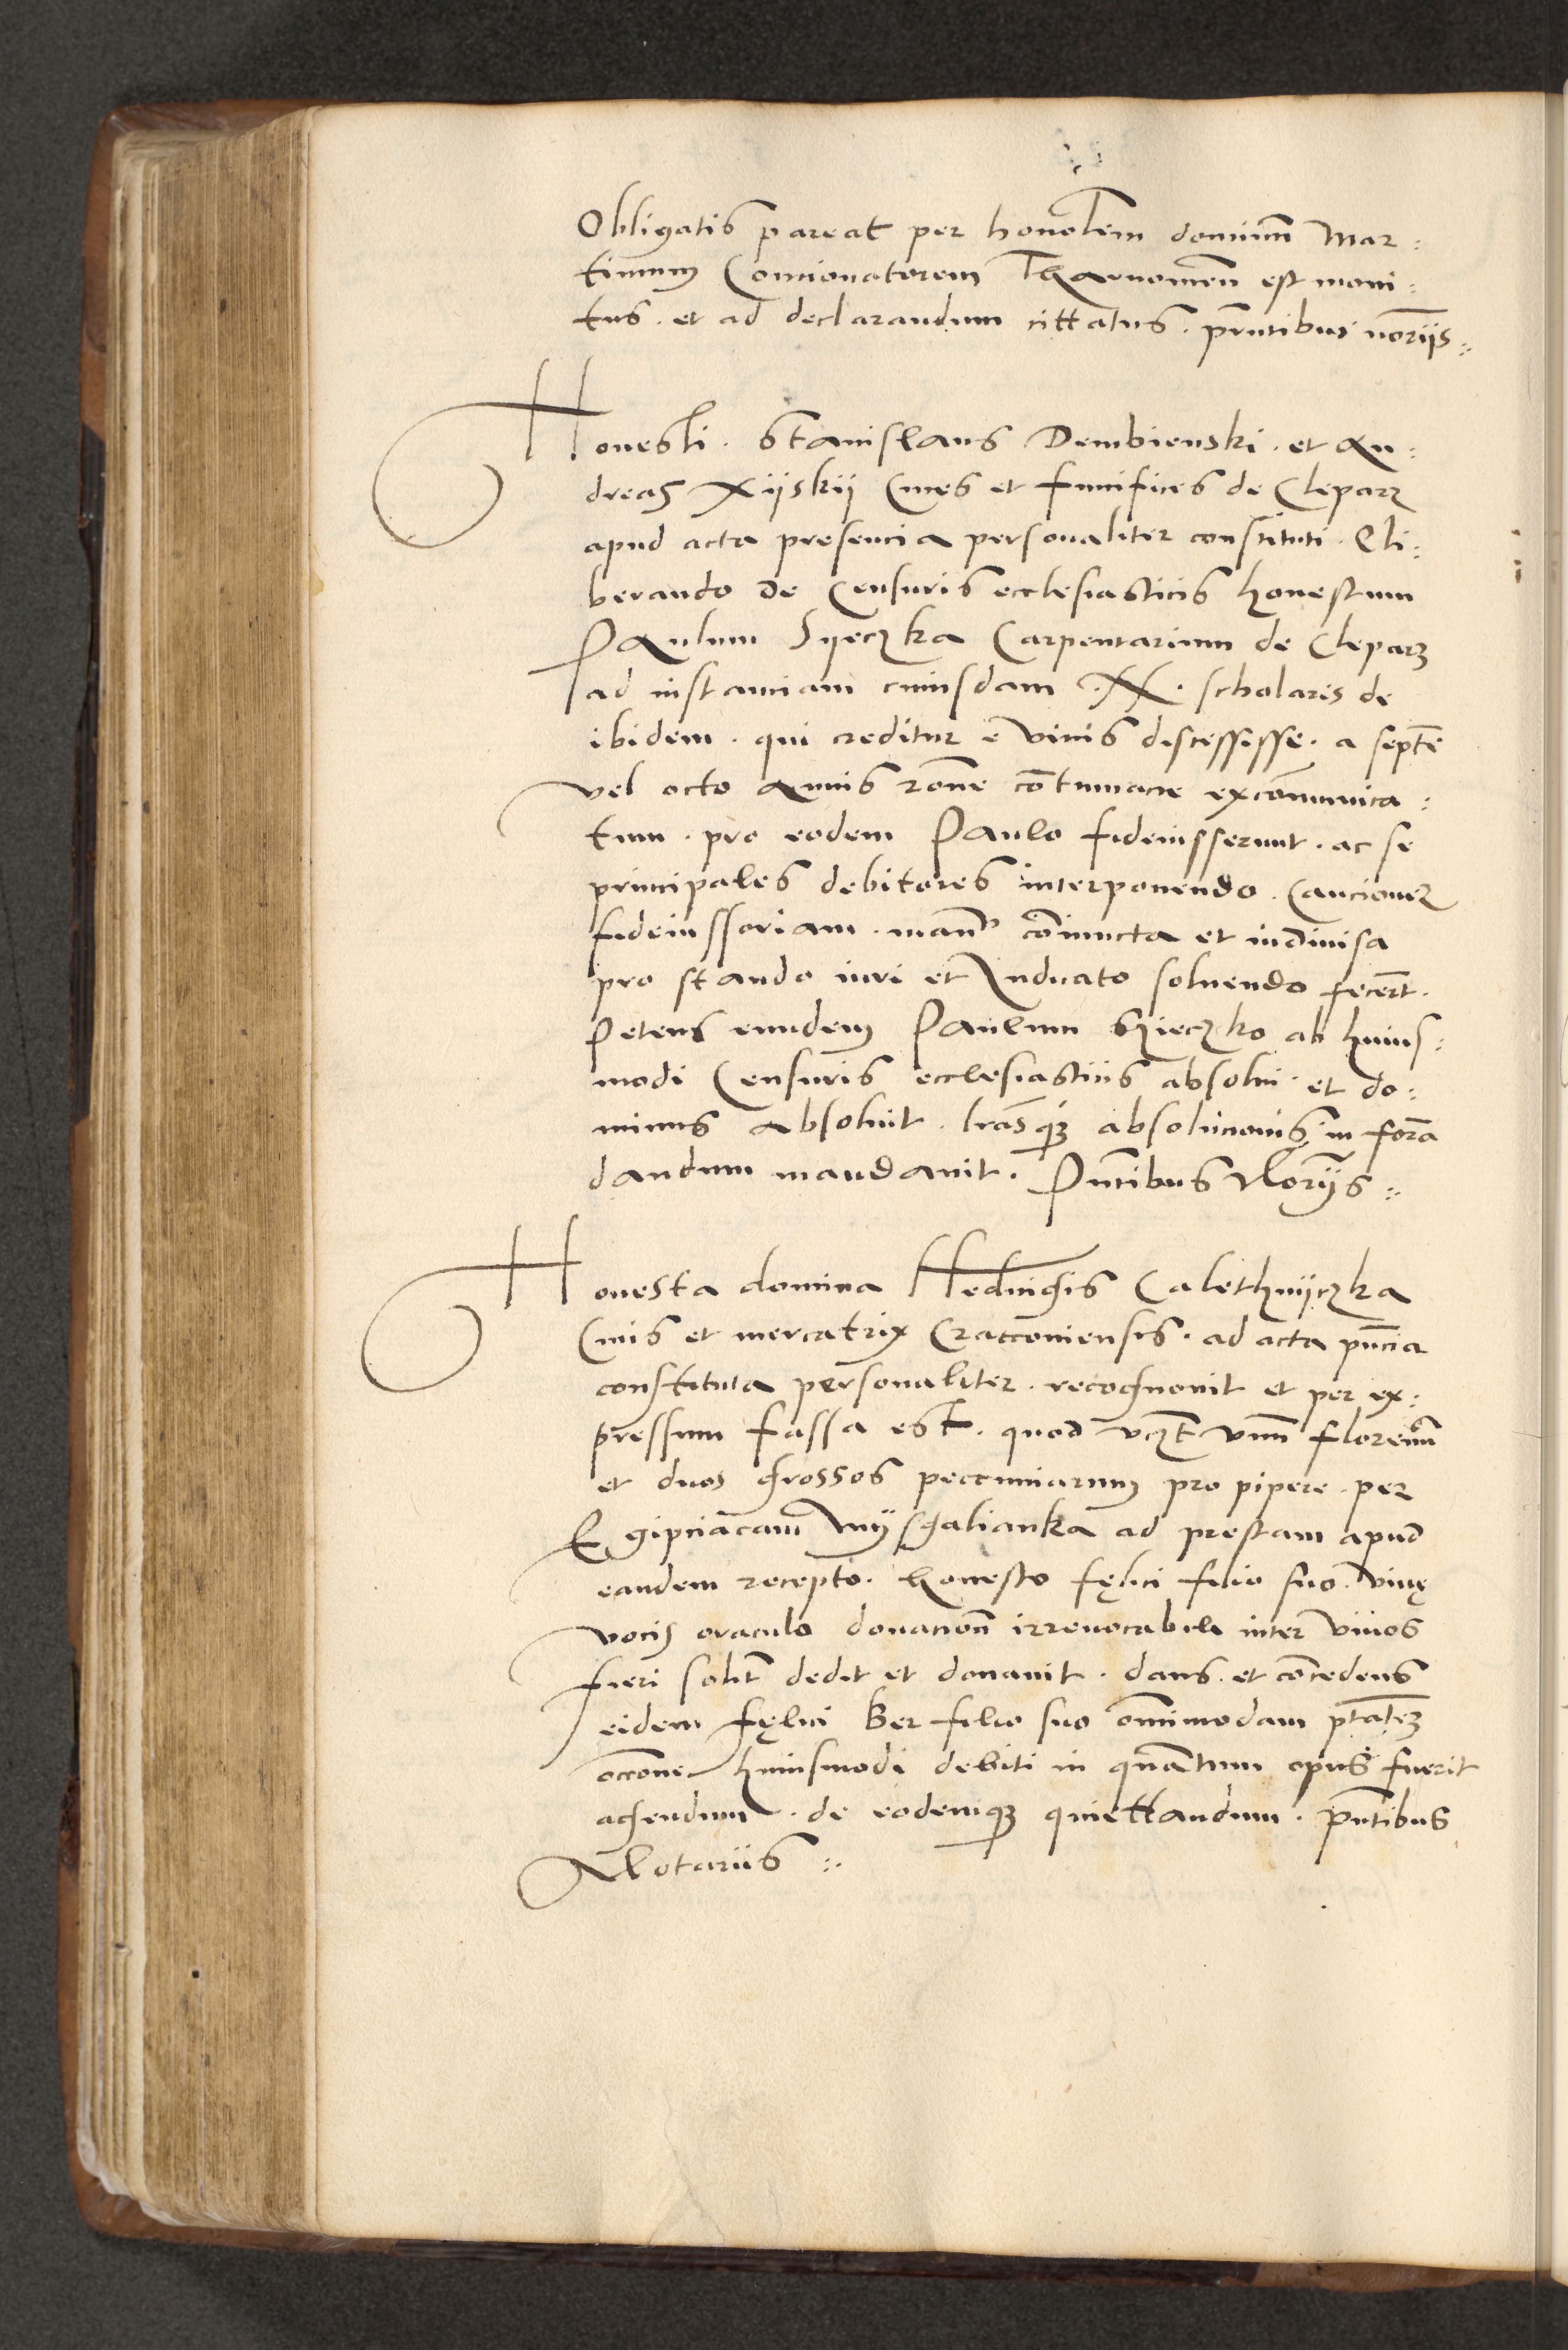 Obligatis pareat per honolem dominum Mar:
tinum Concionatorem Tharnomen est moni:
tus. et ad declarandum cittatus. pntibus noriis
Honesti. Stanislaus Dembienski. et An:
dreas Xijskij Cives et funifices de Cleparz
apud acta presencia personaliter constituti. Eli:
berando de Censuris ecclesiasticis honestum
Paulum Syeczka Carpentarium de Cleparz
ad instanciam cuiusdam .N. scholaris de
ibidem. qui creditur e vivis discessisse. a septe
vel octo Annis rone contumacie excommunica:
tum. pro eodem Paulo fideiusserunt. ac se
principales debitores interponendo. Caucionem
fideiussoriam. manu coniuncta et indivisa
pro stando iuri et Iudicato solvendo fecert.
Petens eundem Paulum Szieczko ab huius:
modi Censuris ecclesiasticis absolvi. et do:
minus absolvit. lrasque absolucionis in fora
dandum mandavit. Pntibus Noriis
Honesta domina Hedvigis Calethnijczka
Civis et mercatrix Cracoviensis. ad acta pncia
constituta personaliter. recognovit et per ex:
pressum fassa est. quod unum florenum
et duos grossos peccuniarum pro pipere. per
Egipciacam Mysgalianka ad prestam apud
eandem recepto. honesto felici filio suo. vive
vocis oraculo donacione irrevocabili inter vivos
fieri solit dedit et donavit. dans. et concedens
eidem felici Ber filio suo omnimodam ptatem
occone huiusmodi debiti in quantum opus fuerit
agendum. de eodemque quiettandum. Pntibus
Notariis